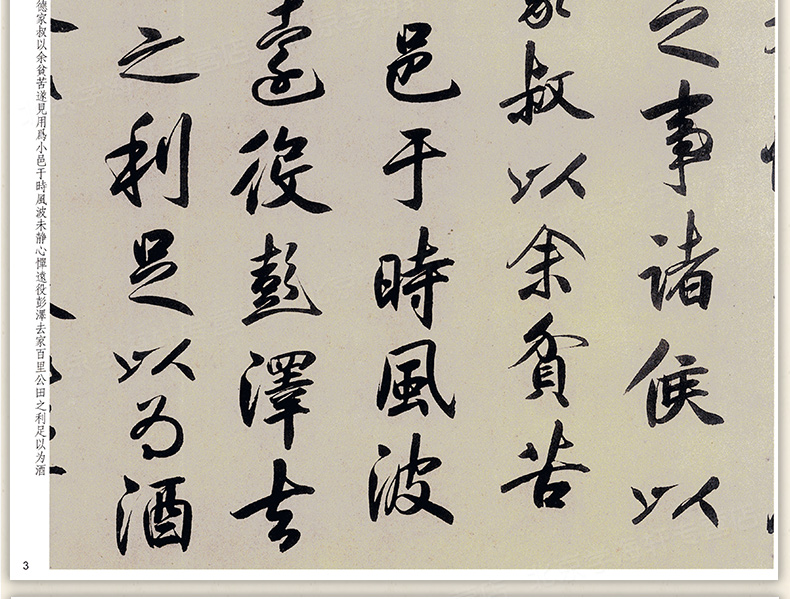 之事諸侯以
家叔以余貧苦
邑于時風波
遠役彭澤去
之利足以为酒
德家叔以余貧苦遂見用爲小邑于時風波未静心憚遠役彭澤去家百里公田之利足以为酒
3